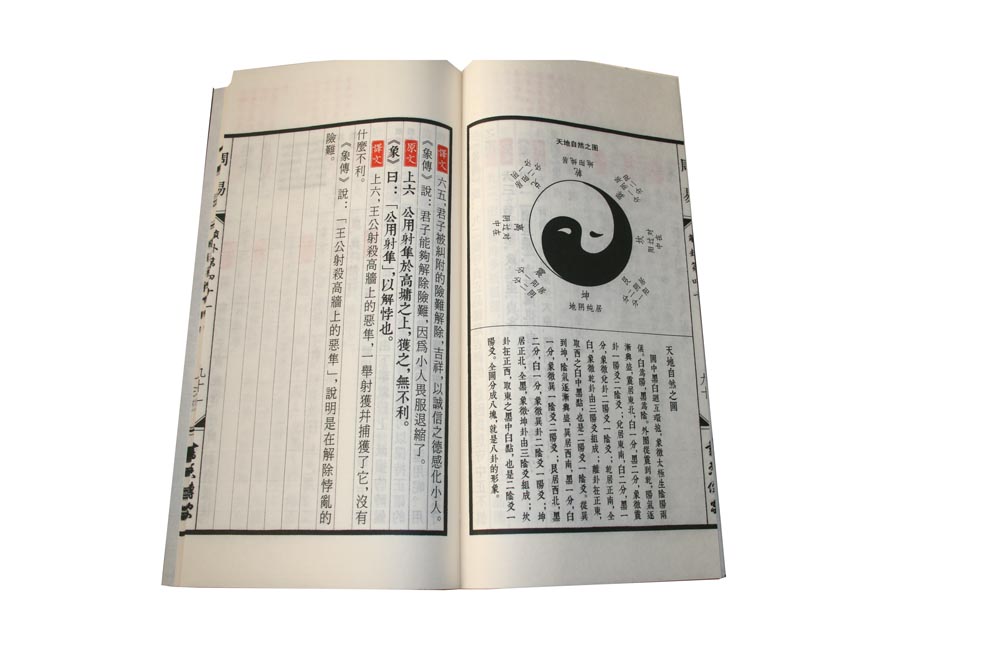 天地自然之圖
乾
坎
艮
坤
地阴純居
震
離
天地自然之圖
圖中黑白迴互環抱,象徵太極生陰陽兩
儀。白爲陽,黑爲陰。外圈從震到乾,陽氣逐
漸典盛,震居東北,白一分,黑二分,象徵震
卦一陽爻二陰爻;兌居東南,白二分,黑一
分,象徵兌卦二陽爻一陰爻;乾居正南,全
白,象徵乾卦由三陽爻組成;離卦在正東,
取西之白中黑點,也是二陽爻一陰爻。從巽
到坤,陰氣逐漸典盛,巽居西南,黑一分,白
二分,象徵巽一陰爻二陽爻;艮居西北,黑
二分,白一分,象徵艮卦二陰爻一陽爻;坤
居正北,全黑,象徵坤卦由三陰爻組成;坎
卦在正西,取東之黑中白點,也是二陰爻一
陽爻。全圖分成八塊,就是八卦的形象。
譯文 六五,君子被糾附的險難解除,吉祥,以誠信之德感化小人。
《象傳》說:君子能夠解除險難,因爲小人畏服退縮了。
原文 上六 公用射隼於高墉之上,獲之,無不利。
《象》曰:「公用射隼」,以解悖也。
譯文 上六,王公射殺高牆上的惡隼,一舉射獲并捕獲了它,沒有
什麼不利。
《象傳》說:「王公射殺高牆上的惡隼」,說明是在解除悖亂的
險難。
周易